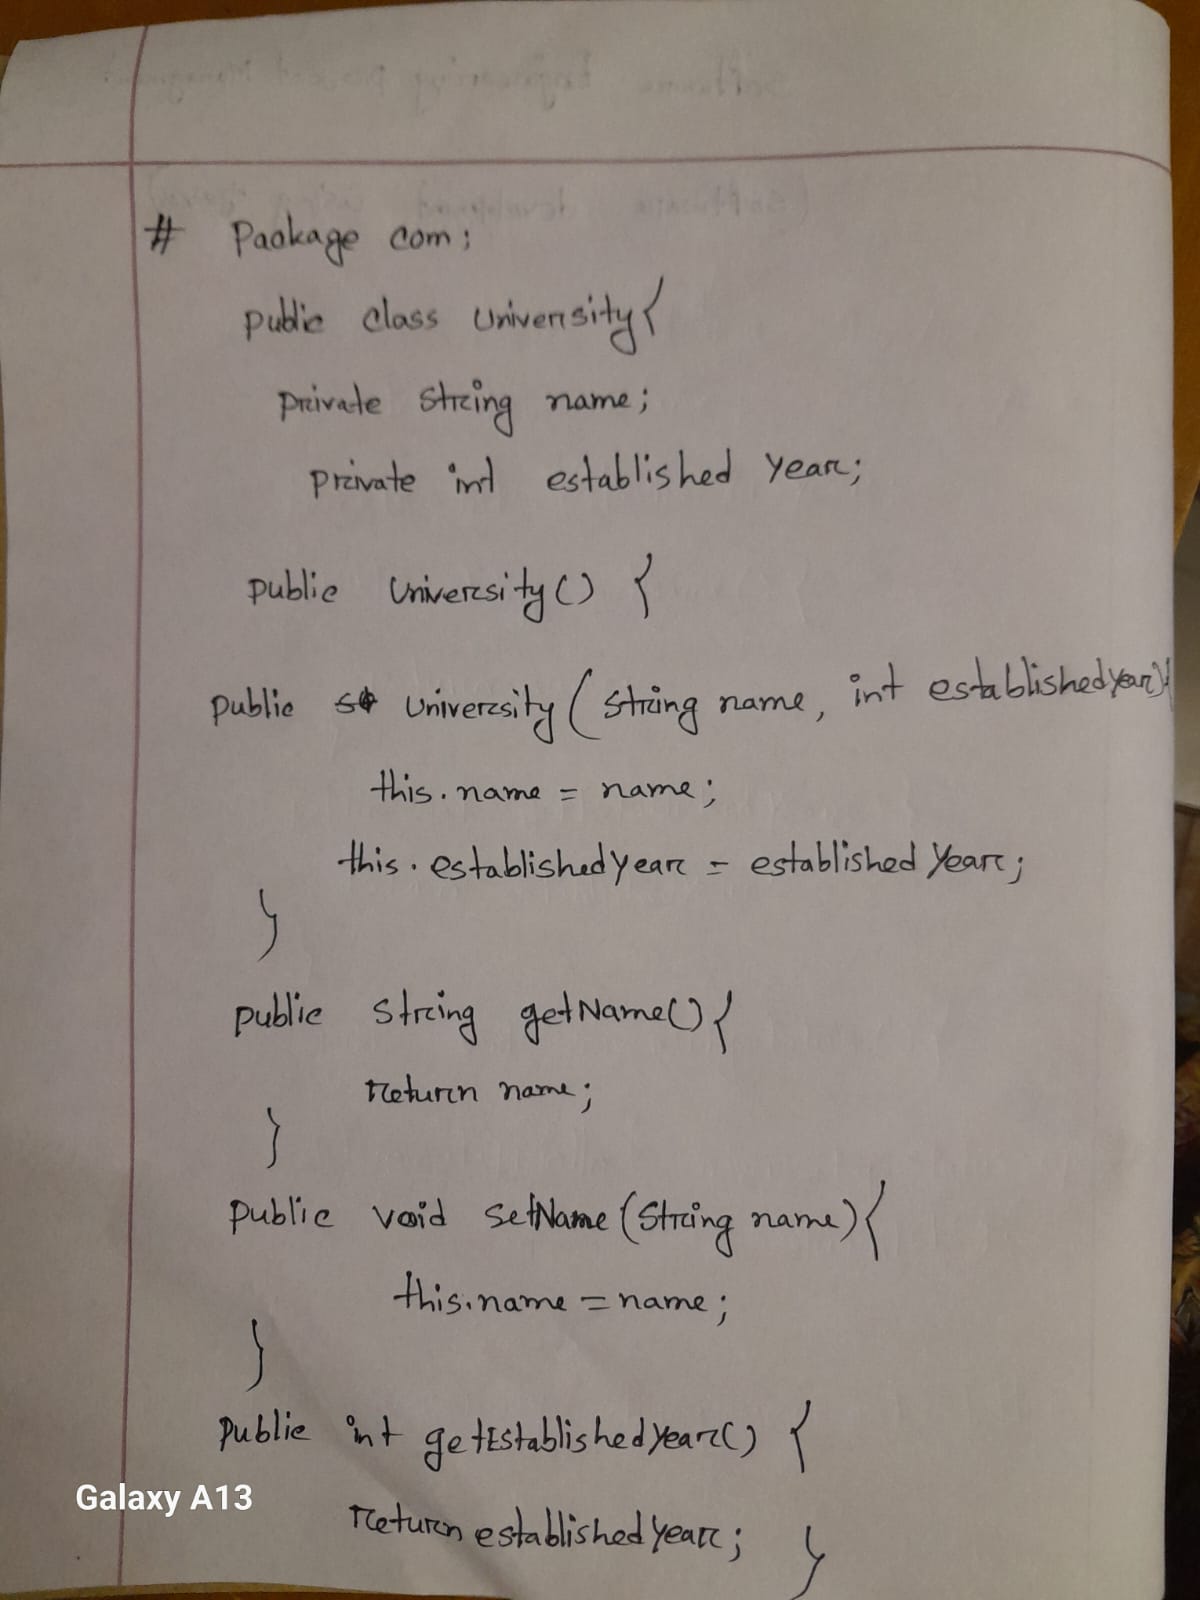 # Package com;
public class University{
private String name;
private int established Year;
public University() {
public University (String name, int establishedyear){
this.name = name;
this.establishedyear = established Year;
}
public String getName(){
return name;
}
public void setName (String name){
this.name = name;
}
public int getEstablishedyear() {
return establishedyear; }
Galaxy A13